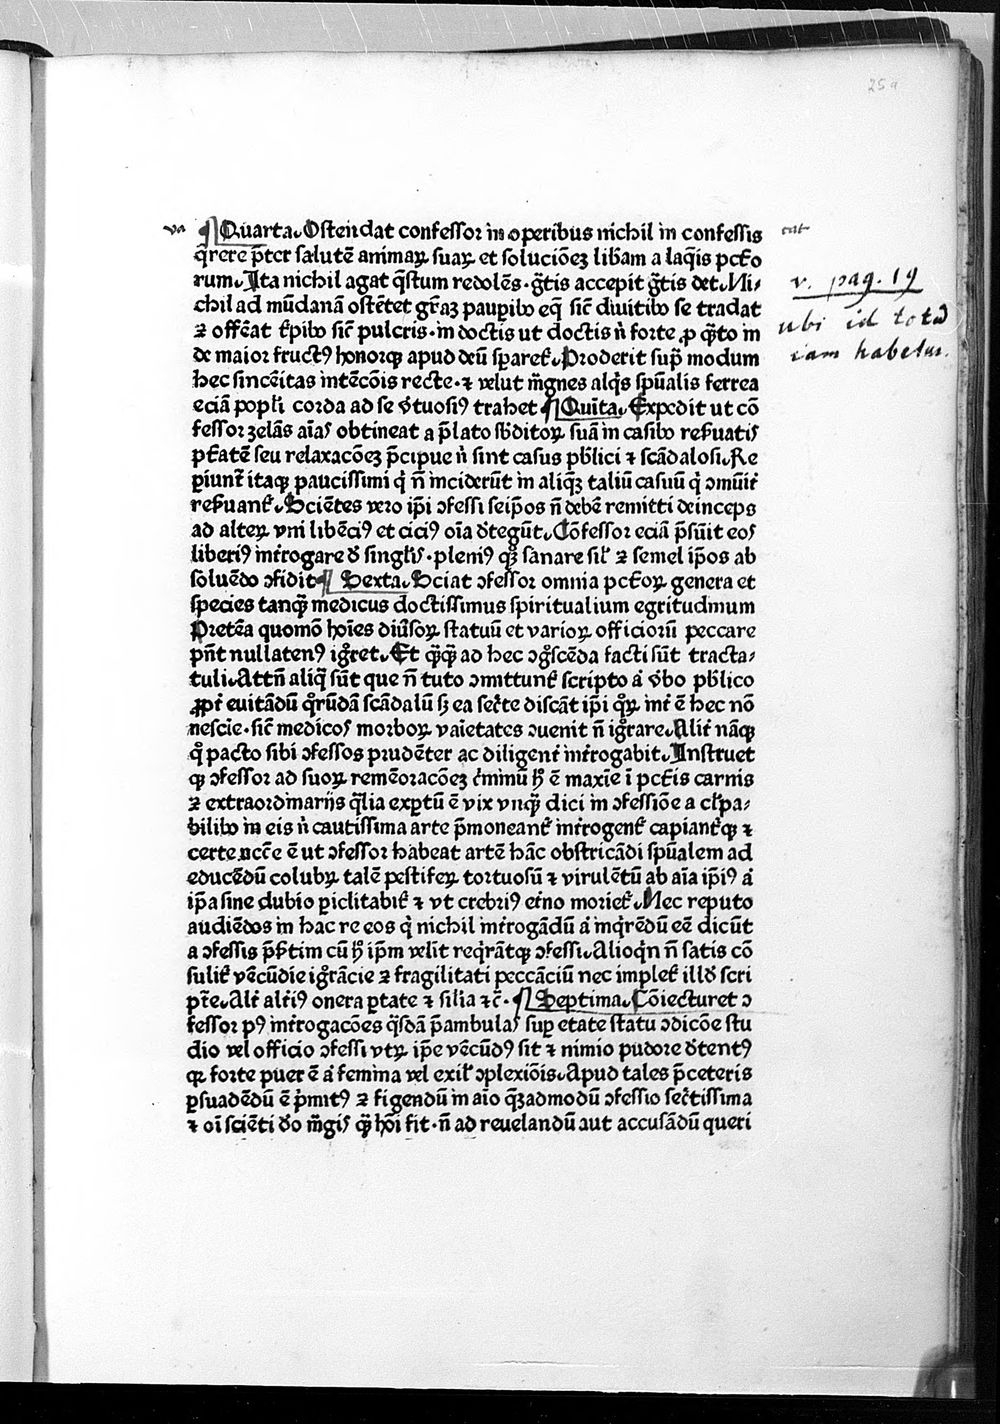 25a
¶ Quarta. Ostendat confessor in operibus nichil in confessis
q̄rere p̄ter salutē animaꝝ suaꝝ et soluciōeꝫ libam a laq̄is pctō
rum. Ita nichil agat q̄stum redolēs · gr̄tis accepit gr̄tis det. Ni⸗
chil ad mūdanā ostētet gr̄aꝫ paupibꝰ eq̄ sic̄ diuitibꝰ se tradat
ꝛ offēat tp̄ibꝰ sic̄ pulcris · in doctis ut doctis n̄ forte ꝓ q̄to in
de maior fructꝰ honorqꝫ apud deū sparet̄. Proderit sup̄ modum
hec sincēitas intēcōis recte · ꝛ velut mḡnes alqs̄ spūalis ferrea
eciā popl̄i corda ad se v̄tuosiꝰ trahet ¶ Quīta. Expedit ut cō
fessor zelās aīas obtineat a p̄lato sb̄ditoꝝ suā in casibꝰ reẜuatis
ptātē seu relaxacōeꝫ p̄cipue n̄ sint casus pb̄lici ꝛ scādalosi. Re
piunt̄ itaqꝫ paucissimi q̄ n̄ inciderūt in aliqꝫ taliū casuū q̄ ꝯmūit̄
reẜuant̄. Sciētes vero ip̄i ꝯfessi seip̄os n̄ debē remitti deinceps
ad alteꝝ vni libēciꝰ et ciciꝰ oīa dt̄egūt. Cōfessor eciā p̄sūit eos
liberiꝰ int̄rogare d̄ singl̄is · pleniꝰ qꝫ sanare sil̄ ꝛ semel ip̄os ab
soluēdo ꝯfidit ¶ Sexta. Sciat ꝯfessor omnia pctōꝝ genera et
species tanq̄ medicus doctissimus spiritualium egritudinum
Pretēa quomō hoīes diūsoꝝ statuū et varioꝝ officiorū peccare
pn̄t nullatenꝰ igr̄et. Et q̄q̄ ad hec ꝯgscēda facti sūt tracta⸗
tuli. Attn̄ aliq̄ sūt que n̄ tuto ꝯmittunt̄ scripto a̍ v̄bo pb̄lico
ꝓpt̄ euitādū qr̄ūdā scādalū sꝫ ea secr̄te discāt ip̄i qꝝ int̄ ē hec nō
nescīe · sic̄ medicos morboꝝ vaīetates ꝯuenit n̄ igr̄are. Alit̄ nāqꝫ
q̊ pacto sibi ꝯfessos prudēter ac diligent̄ int̄rogabit. Instruet
qꝫ ꝯfessor ad suoꝝ remēoracōeꝫ c̄minū ꝗ ē maxīe ī pctīs carnis
ꝛ extraordinarijs q̄lia exptū ē vix vnq̄ dici in ꝯfessiōe a cl̄pa⸗
bilibꝰ in eis n̄ cautissima arte p̄moneant̄ int̄rogent̄ capiant̄qꝫ ꝛ
certe ncc̄e ē ut ꝯfessor habeat artē hāc obstricādi spūalem ad
educēdū colubꝝ talē pestifeꝝ tortuosū ꝛ virulētū ab aīa ip̄iꝰ a̍
ip̄a sine dubio piclitabit̄ ꝛ vt crebriꝰ etn̄o moriet̄. Nec reputo
audiēdos in hac re eos q̄ nichil int̄rogādū a̍ inq̄rēdū eē dicūt
a ꝯfessis p̄ẜtim cū ꝗ ip̄m velit req̄rātqꝫ ꝯfessi. Alioqn̄ n̄ satis cō
sulit̄ vēcūdie igr̄ācie ꝛ fragilitati peccāciū nec implet̄ illd̄ scri
pt̄e. Alt̄ alt̄iꝰ onera ptate ꝛ silia ꝛc̄ · ¶ Septima. Cōiecturet ꝯ
fessor pꝰ int̄rogacōes q̄sdā p̄ambulas sup etate statu ꝯdicōe stu
dio vel officio ꝯfessi vtꝝ ip̄e vēcūdꝰ sit ꝛ nimio pudore dt̄entꝰ
qꝫ forte puer ē a̍ femina vel exil̄ ꝯplexiōis. Apud tales p̄ceteris
psuadēdū ē p̄mitꝰ ꝛ figendū in aīo q̄ꝫadmodū ꝯfessio secr̄tissima
ꝛ oī sciēti d̄o mḡis q̄ hōi fit · n̄ ad reuelandū aut accusādū queri
v. pag. 19
ubi id totū
iam habetur.